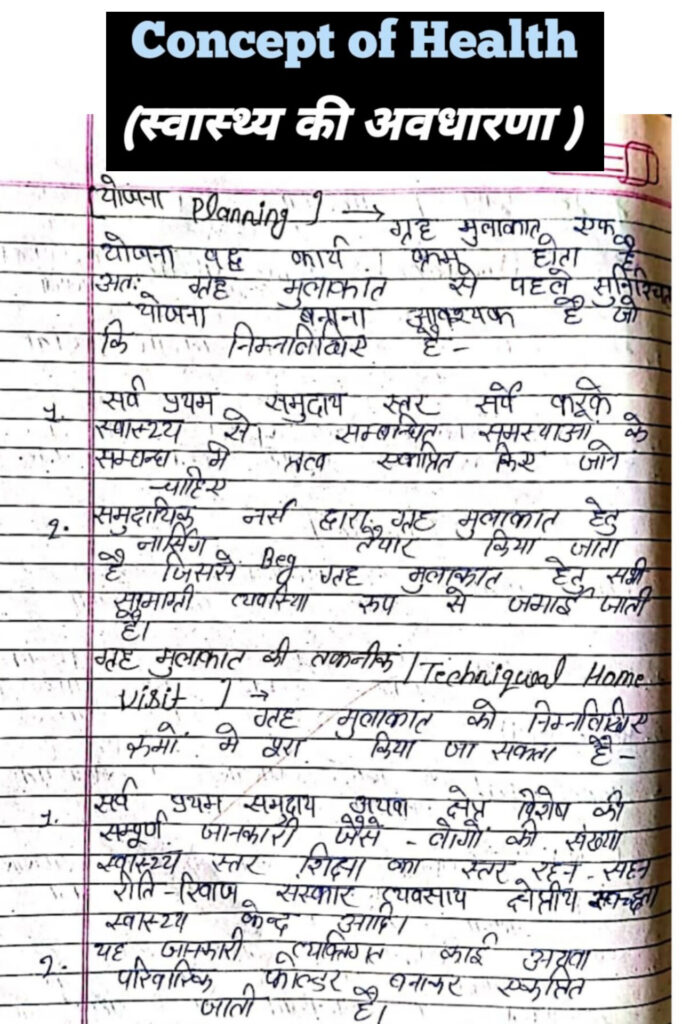 Concept of Health
(स्वास्थ्य की अवधारणा )
[योजना Planning ] → गृह मुलाकात एक
योजना वद्ध कार्य क्रम होता है
अतः गृह मुलाकात से पहले सुनिश्चित
योजना बनाना आवश्यक है जो
कि निम्नलिखित है -
1. सर्व प्रथम समुदाय स्तर सर्वे करके
स्वास्थ्य से सम्बन्धित समस्याओ के
सम्बन्ध मे किए जाने
चाहिए
2. समुदायिक नर्स द्वारा गृह मुलाकात हेतु
नार्सिग तैयार किया जाता
है जिससे Beg गृह मुलाकात हेतु सभी
सामाग्री रूप से जमाई जाती
है।
गृह मुलाकात की तकनीक [Techniqual Home
visit ] →
गृह मुलाकात को निम्नलिखित
क्रमों मे पूरा किया जा सकता है -
1. सर्व प्रथम समुदाय अथवा क्षेत्र विशेष की
सम्पूर्ण जानकारी जैसे - लोगों की संख्या
स्वास्थ्य स्तर शिक्षा का स्तर रहन - सहन
रीति - रिवाज संस्कार व्यवसाय क्षेत्रीय स्वच्छता
स्वास्थ्य केन्द आदि।
2. यह जानकारी व्यक्तिगत कार्ड अथवा
परिवारिक फोल्डर बनाकर एकत्रित
जाती है।